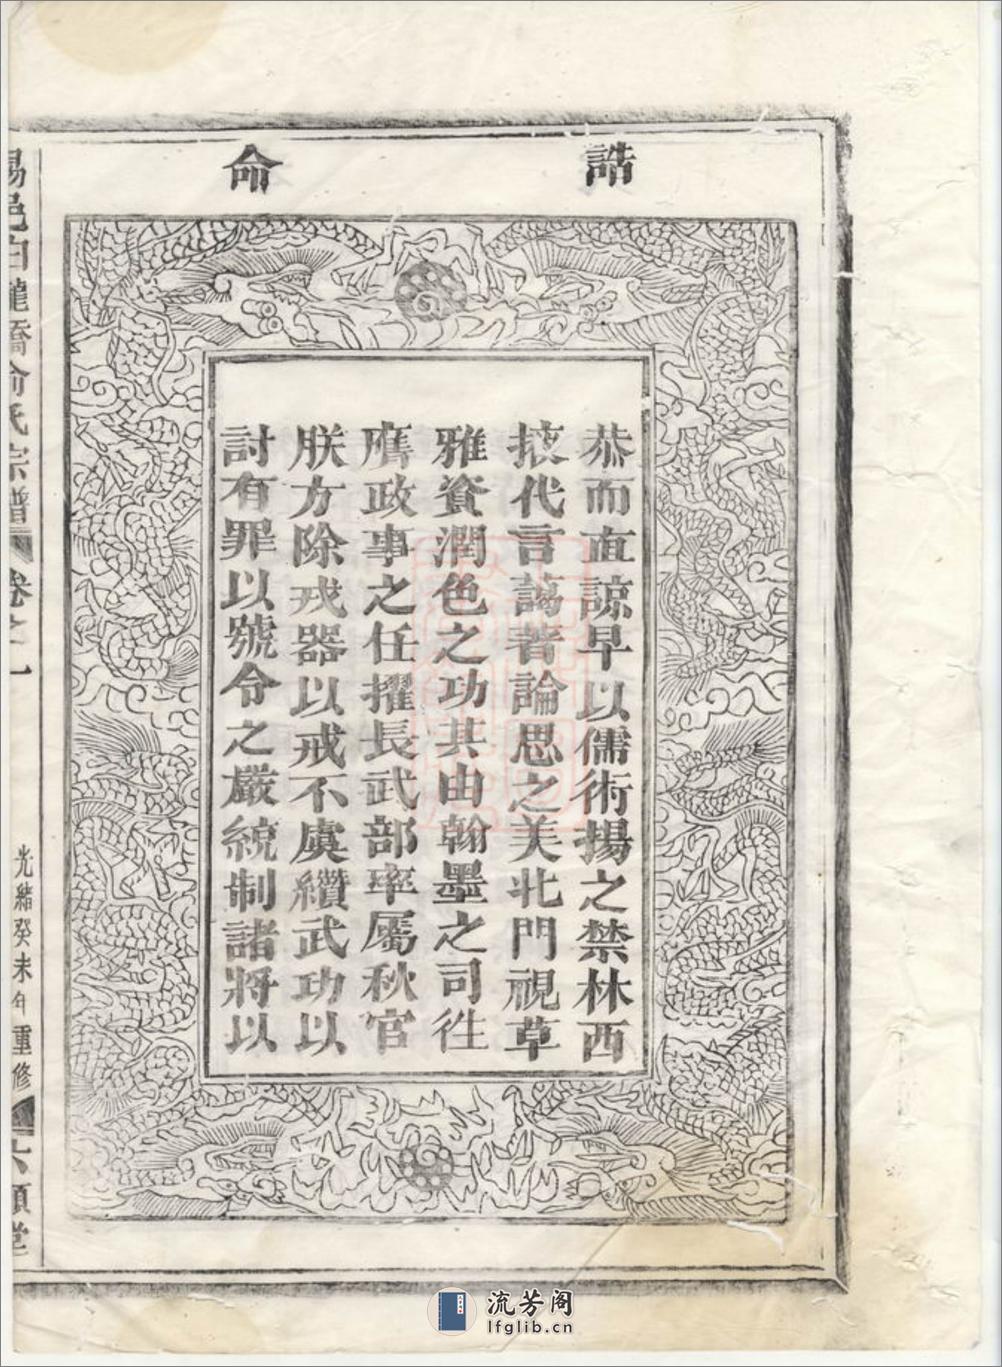 誥命
恭而直諒早以儒術揚之禁林西
掖代言藹著論思之美北門視草
雅資潤色之功其由翰墨之司往
膺政事之任擢長武部率屬秋官
朕方除戎器以戒不虞纘武功以
討有罪以號令之嚴統制諸將以
錫邑白龍橋俞氏宗譜
卷之一
光緒癸未年重修
六順堂
流芳阁
lfglib.cn